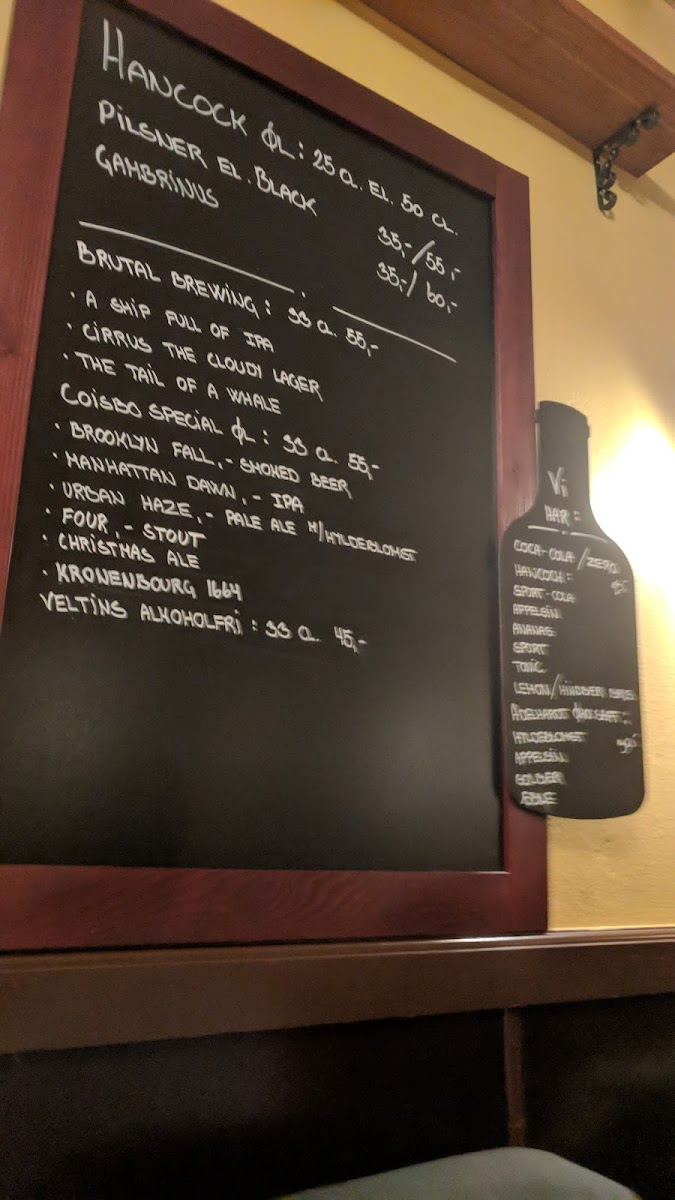 HANCOCK ØL: 25 CL. EL. 50 CL.
PILSNER EL. BLACK 35,-/55,-
GAMBRINUS 35,-/60,-
BRUTAL BREWING: 33 CL. 55,-
· A SHIP FULL OF IPA
· CIRRUS THE CLOUDY LAGER
· THE TAIL OF A WHALE
COISBO SPECIAL ØL: 33 CL. 55,-
· BROOKLYN FALL.- SMOKED BEER
· MANHATTAN DAWN.- IPA
· URBAN HAZE.- PALE ALE M/HYLDEBLOMST
· FOUR.- STOUT
· CHRISTMAS ALE
· KRONENBOURG 1664
VELTINS ALKOHOLFRI: 33 CL. 45,-
Vi
HAR:
COCA-COLA/ZERO
HANCOCK:
SPORT-COLA
APPELSIN
ANANAS
SPORT
TONIC
LEMON/HINDBÆR
HYLDEBLOMST
APPELSIN
SOLBÆR
ÆBLE